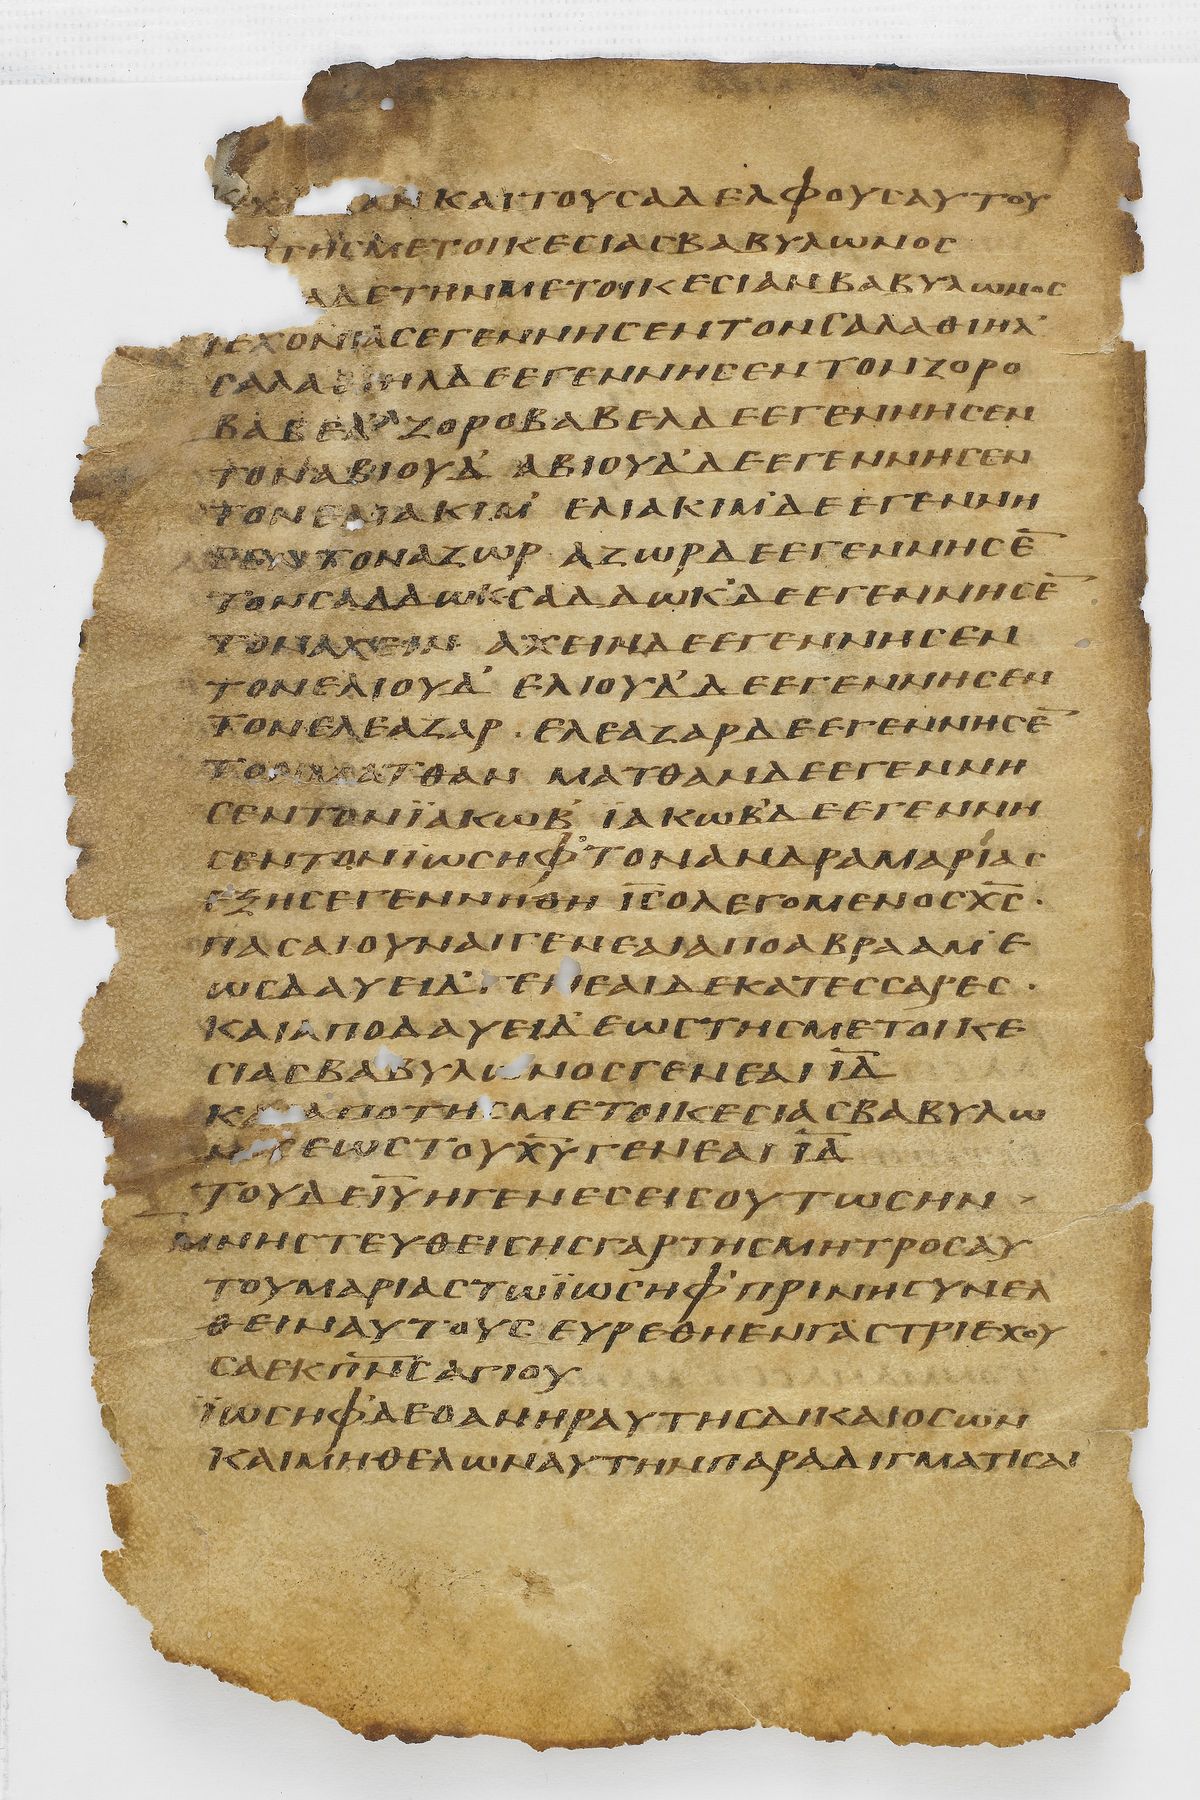 ΑΝ ΚΑΙ ΤΟΥϹ ΑΔΕΛΦΟΥϹ ΑΥΤΟΥ
ΤΗϹ ΜΕΤΟΙΚΕϹΙΑϹ ΒΑΒΥΛΩΝΟϹ
ΔΕ ΤΗΝ ΜΕΤΟΙΚΕϹΙΑΝ ΒΑΒΥΛΩΝΟϹ
ΙΕΧΟΝΙΑϹ ΕΓΕΝΝΗϹΕΝ ΤΟΝ ϹΑΛΑΘΙΗΛ᾽
ϹΑΛΑΘΙΗΛ ΔΕ ΕΓΕΝΝΗϹΕΝ ΤΟΝ ΖΟΡΟ
ΒΑΒΕΛ ΖΟΡΟΒΑΒΕΛ ΔΕ ΕΓΕΝΝΗϹΕΝ
ΤΟΝ ΑΒΙΟΥΔ᾽ ΑΒΙΟΥΔ᾽ ΔΕ ΕΓΕΝΝΗϹΕΝ
ΤΟΝ ΕΛΙΑΚΙΜ᾽ ΕΛΙΑΚΙΜ᾽ ΔΕ ΕΓΕΝΝΗ
ϹΕΝ ΤΟΝ ΑΖΩΡ ΑΖΩΡ ΔΕ ΕΓΕΝΝΗϹΕ̅
ΤΟΝ ϹΑΔΔΩΚ ϹΑΔΔΩΚ᾽ ΔΕ ΕΓΕΝΝΗϹΕ̅
ΤΟΝ ΑΧΕΙΝ ΑΧΕΙΝ ΔΕ ΕΓΕΝΝΗϹΕΝ
ΤΟΝ ΕΛΙΟΥΔ᾽ ΕΛΙΟΥΔ᾽ ΔΕ ΕΓΕΝΝΗϹΕΝ
ΤΟΝ ΕΛΕΑΖΑΡ · ΕΛΕΑΖΑΡ ΔΕ ΕΓΕΝΝΗϹΕ̅
ΤΟΝ ΜΑΤΘΑΝ ΜΑΤΘΑΝ ΔΕ ΕΓΕΝΝΗ
ϹΕΝ ΤΟΝ ΪΑΚΩΒ᾽ ΪΑΚΩΒ᾽ ΔΕ ΕΓΕΝΝΗ
ϹΕΝ ΤΟΝ ΪΩϹΗΦ᾽ ΤΟΝ ΑΝΔΡΑ ΜΑΡΙΑϹ
ΕΞ ΗϹ ΕΓΕΝΝΗΘΗ Ι̅Ϲ̅ Ο ΛΕΓΟΜΕΝΟϹ Χ̅Ϲ̅ ·
ΠΑϹΑΙ ΟΥΝ ΑΙ ΓΕΝΕΑΙ ΑΠΟ ΑΒΡΑΑΜ᾽ Ε
ΩϹ ΔΑΥΕΙΔ᾽ ΓΕΝΕΑΙ ΔΕΚΑΤΕϹϹΑΡΕϹ ·
ΚΑΙ ΑΠΟ ΔΑΥΕΙΔ᾽ ΕΩϹ ΤΗϹ ΜΕΤΟΙΚΕ
ϹΙΑϹ ΒΑΒΥΛΩΝΟϹ ΓΕΝΕΑΙ Ι̅Δ̅
ΚΑΙ ΑΠΟ ΤΗϹ ΜΕΤΟΙΚΕϹΙΑϹ ΒΑΒΥΛΩ
ΝΟϹ ΕΩϹ ΤΟΥ Χ̅Υ̅ ΓΕΝΕΑΙ Ι̅Δ̅
ΤΟΥ ΔΕ Ι̅Υ̅ Η ΓΕΝΕϹΕΙϹ ΟΥΤΩϹ ΗΝ >
ΜΝΗϹΤΕΥΘΕΙϹΗϹ ΓΑΡ ΤΗϹ ΜΗΤΡΟϹ ΑΥ
ΤΟΥ ΜΑΡΙΑϹ ΤΩ ΪΩϹΗΦ᾽ ΠΡΙΝ Η ϹΥΝΕΛ
ΘΕΙΝ ΑΥΤΟΥϹ ΕΥΡΕΘΗ ΕΝ ΓΑϹΤΡΙ ΕΧΟΥ
ϹΑ ΕΚ Π̅Ν̅Ϲ̅ ΑΓΙΟΥ
ΪΩϹΗΦ᾽ ΔΕ Ο ΑΝΗΡ ΑΥΤΗϹ ΔΙΚΑΙΟϹ ΩΝ
ΚΑΙ ΜΗ ΘΕΛΩΝ ΑΥΤΗΝ ΠΑΡΑΔΙΓΜΑΤΙϹΑΙ